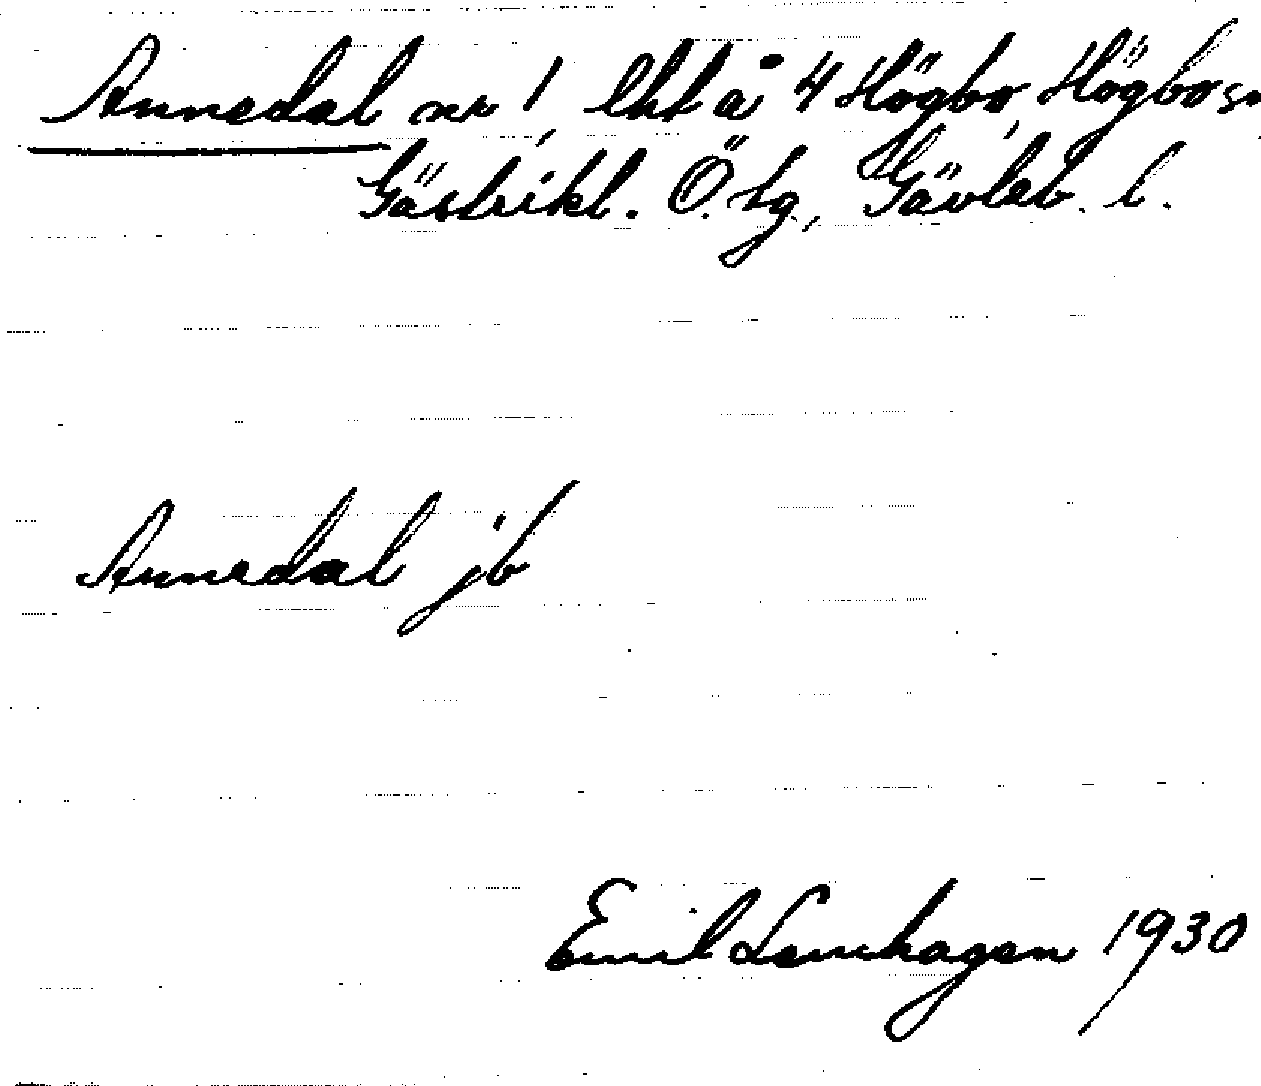 Annedal nr 1, lht å 4 Högbo, Högbo sn
Gästrikl. Ö. tg, Gävleb. l.
Annedal jb
Emil Lenhagen 1930